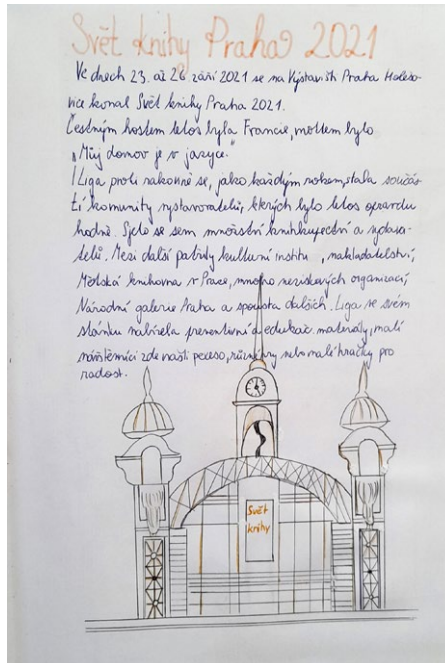 Svět knihy Praha 2021
Ve dnech 23. až 26 září 2021 se na Výstavišti Praha Holešo-
vice konal Svět knihy Praha 2021.
Čestným hostem letos byla Francie, mottem bylo
"Můj domov je v jazyce."
Liga proti rakovině se, jako každým rokem, stala součás-
tí komunity vystavovatelů, kterých bylo letos opravdu
hodně. Sjelo se sem množství knihkupectví a vydava-
telů. Mezi další patřily kulturní institu , nakladatelství,
Městská knihovna v Praze, mnoho neziskových organizací,
Národní galerie Praha a spousta dalších. Liga ve svém
stánku nabízela preventivní a edukač. materiály, malí
návštěvníci zde našli pexeso, různé hry nebo malé hračky pro
radost.
Svět
knihy